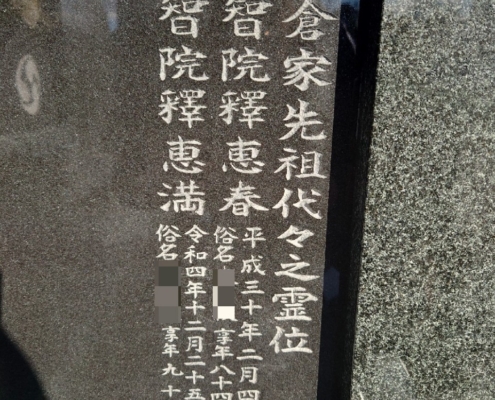 倉家先祖代々之霊位
智院釋恵春
平成三十年二月四
俗名 享年八十四
智院釋恵満
令和四年十二月二十五
俗名 享年九十